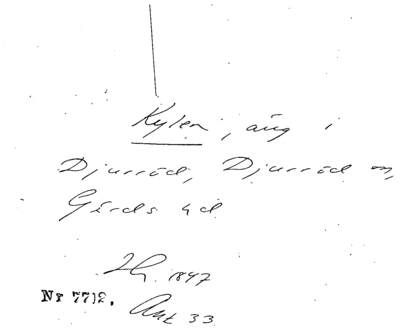 Kylen, äng i
Djurröd, Djurröd sn,
Gärds hd
1847
Nr 7712. Akt 33